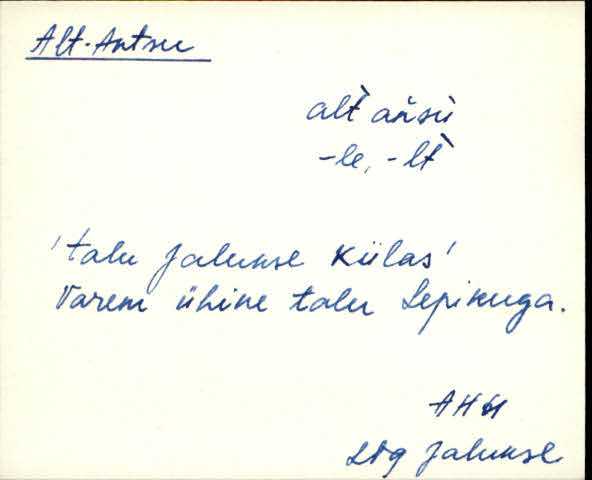 Alt-Antsu
alt̀ ańsù
-le, -lt̀
'talu Jalukse külas'
Varem ühine talu Lepikuga.
AH 61
Ldg Jalukse